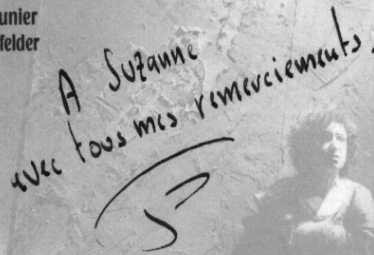 unier
felder
A Suzanne
avec tous mes remerciements.